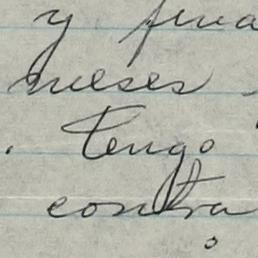 y
meses
. Tengo
contra